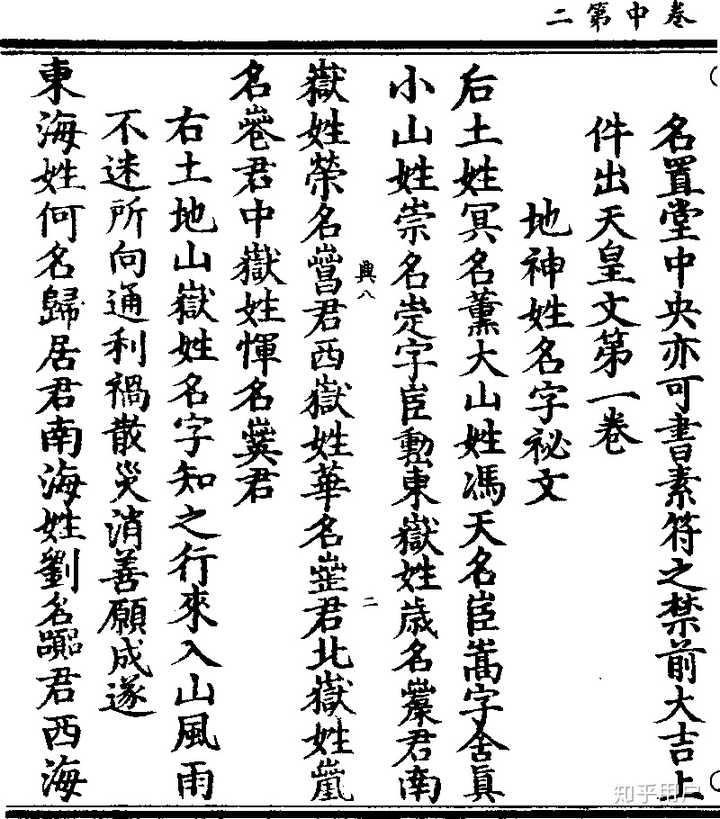 卷中第二
名置堂中央亦可書素符之禁前大吉上
件出天皇文第一卷
地神姓名字祕文
后土姓冥名薰大山姓馮天名嵩字舍真
小山姓崇名字勳東嶽姓歲名君南
嶽姓榮名君西嶽姓華名君北嶽姓
八
二
名君中嶽姓惲名君
右土地山嶽姓名字知之行來入山風雨
不迷所向通利禍散災消善願成遂
東海姓何名歸居君南海姓劉名君西海
知乎用户